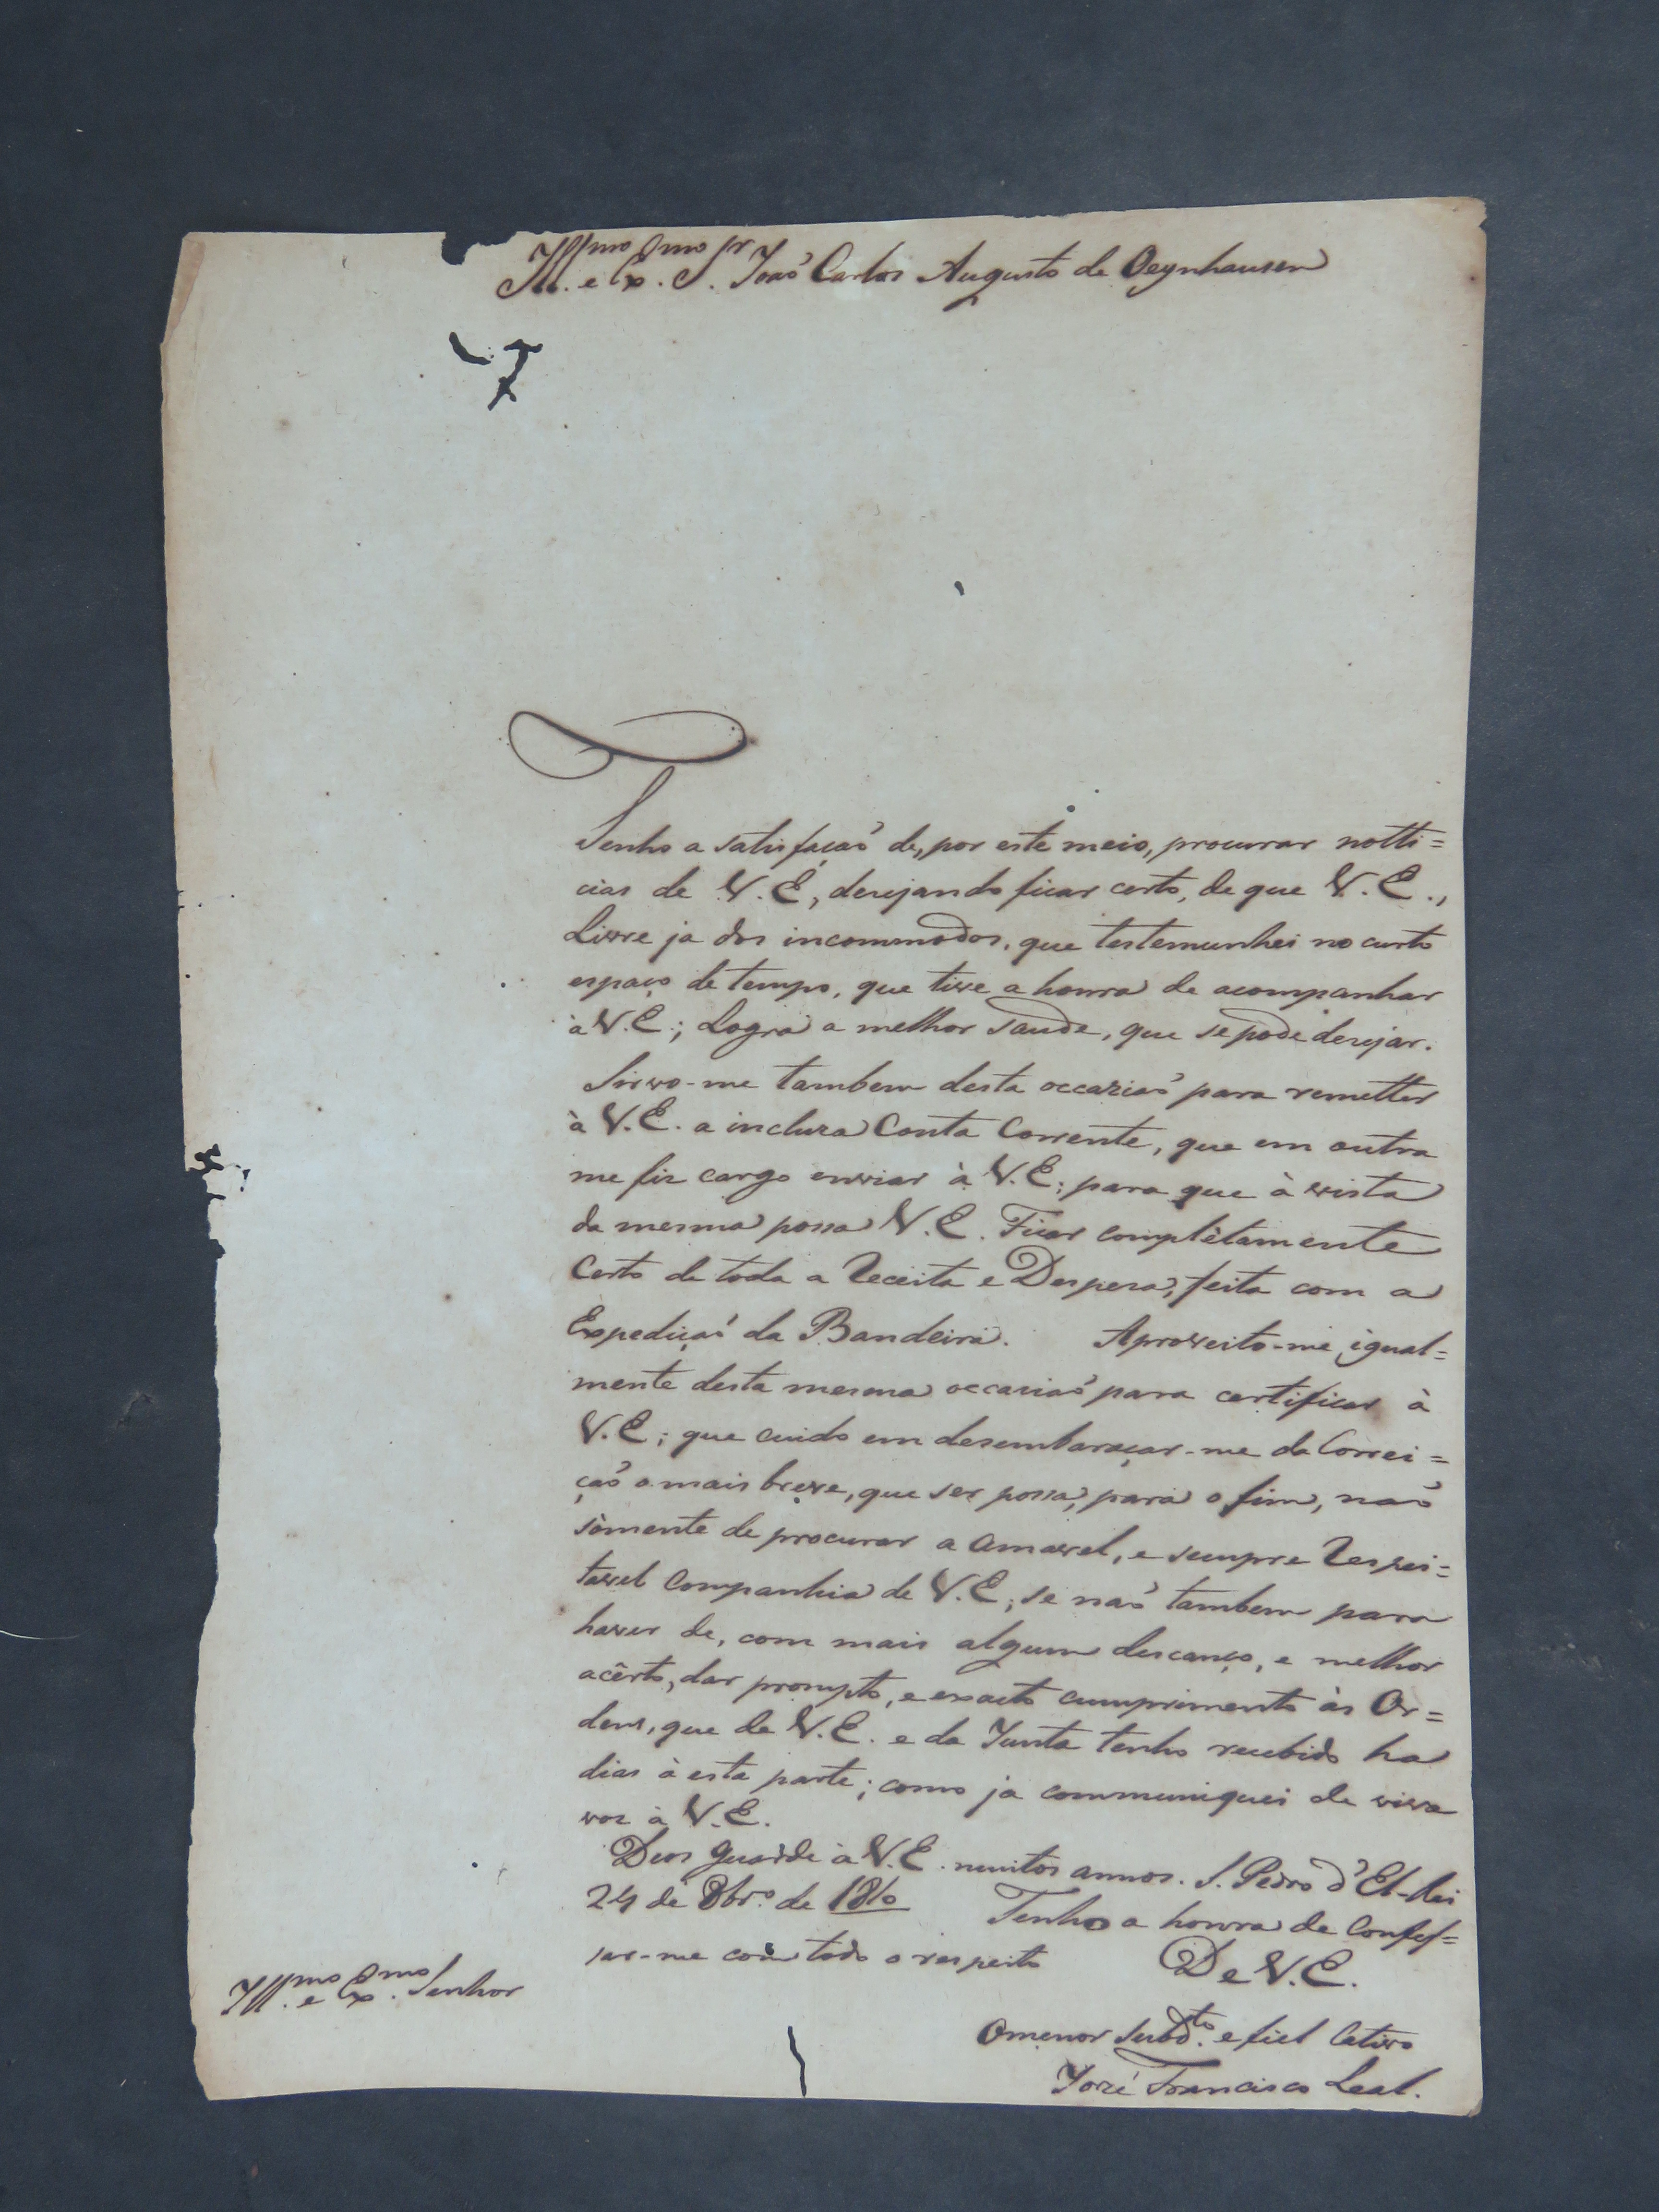 Ill.mo e Ex.mo Sr. João Carlos Augusto de Oeynhausen
Tenho a satisfação de, por este meio, procurar notti=
cias de V. E., desejando ficar certo, de que V. E.,
Livre ja dos incommodos, que testemunhei no curto
espaço de tempo, que tive a honra de acompanhar
à V. E.; Logra a melhor saude, que se pode desejar.
Sirvo-me tambem desta occazião para remetter
à V. E. a incluza Conta Corrente, que em outra
me fiz cargo enviar à V. E.; para que à vista
da mesma possa V. E. Ficar complètamente
Certo de toda a Receita e Despesa, feita com a
Expedição da Bandeira. Aproveito-me igual=
mente desta mesma occasião para certificar à
V. E.; que cuido em desembaraçar-me da Correi=
ção o mais breve, que ser possa, para o fim, não
sòmente de procurar a Amavel, e sempre Respei=
tavel Companhia de V. E.; se não tambem para
haver de, com mais algum descanço, e melhor
acêrto, dar prompto, e exacto cumprimento às Or=
dens, que de V. E. e da Junta tenho recebido ha
dias à esta parte; como ja communiquei de viva
voz à V. E.
Deos Guarde à V. E. muitos annos. S. Pedro d'El-Rei
24 de 8br.o de 1810 Tenho a honra de Confes=
sar-me com todo o respeito De V. E.
Ill.mo e Ex.mo Senhor
O menor Subd.to e fiel Cativo
José Francisco Leal.